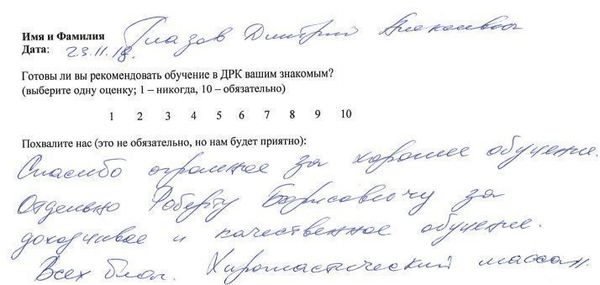 Имя и Фамилия Глазов Дмитрий
Дата: 23.11.18.
Готовы ли вы рекомендовать обучение в ДРК вашим знакомым?
(выберите одну оценку; 1 – никогда, 10 – обязательно)
1 2 3 4 5 6 7 8 9 10
Похвалите нас (это не обязательно, но нам будет приятно):
Спасибо огромное за хорошее обучение.
Отдельно Роберту Борисовичу за
доходчивое и качественное обучение.
Всех благ. Хиропластический массаж.